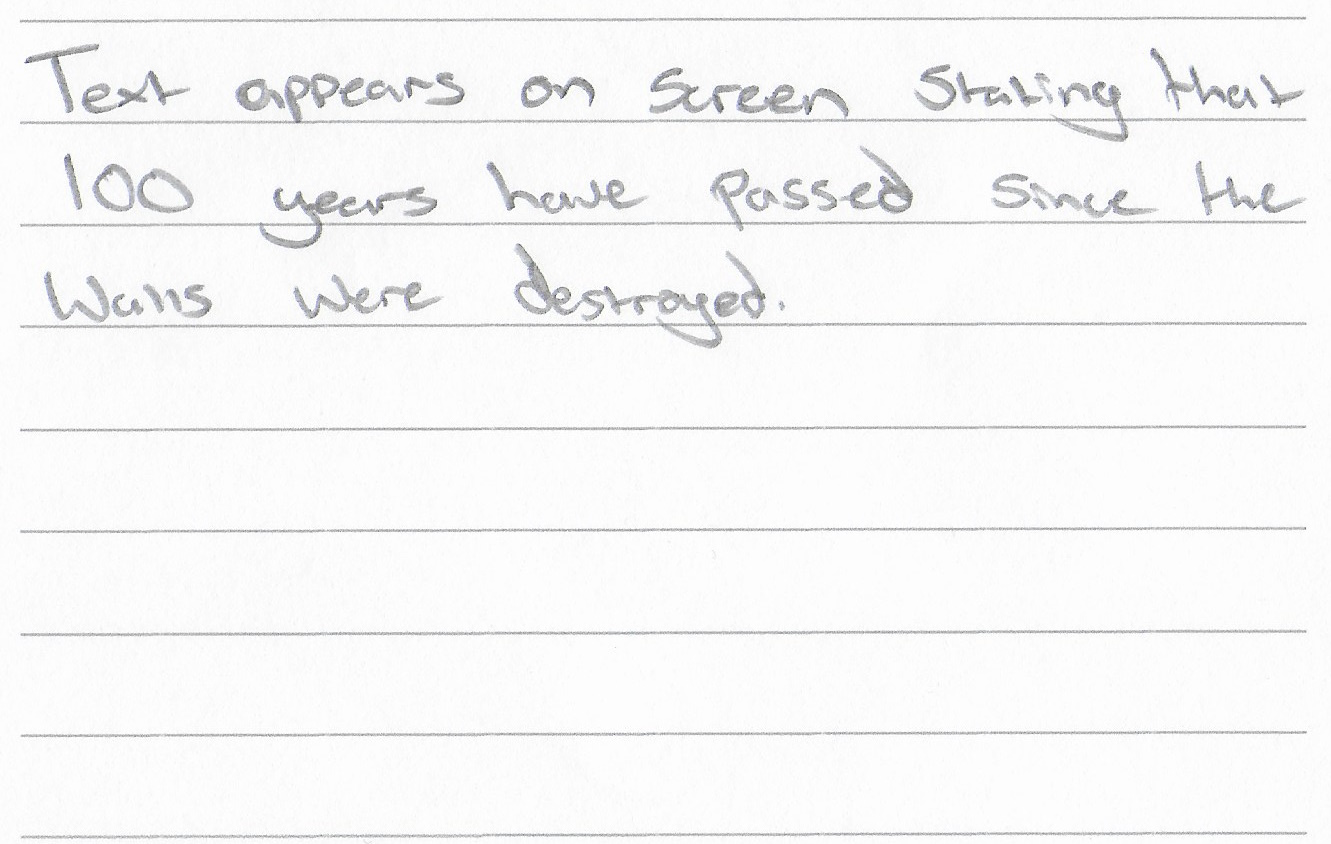 Text appears on Screen Stating that
100 years have passed since the
Walls were destroyed.